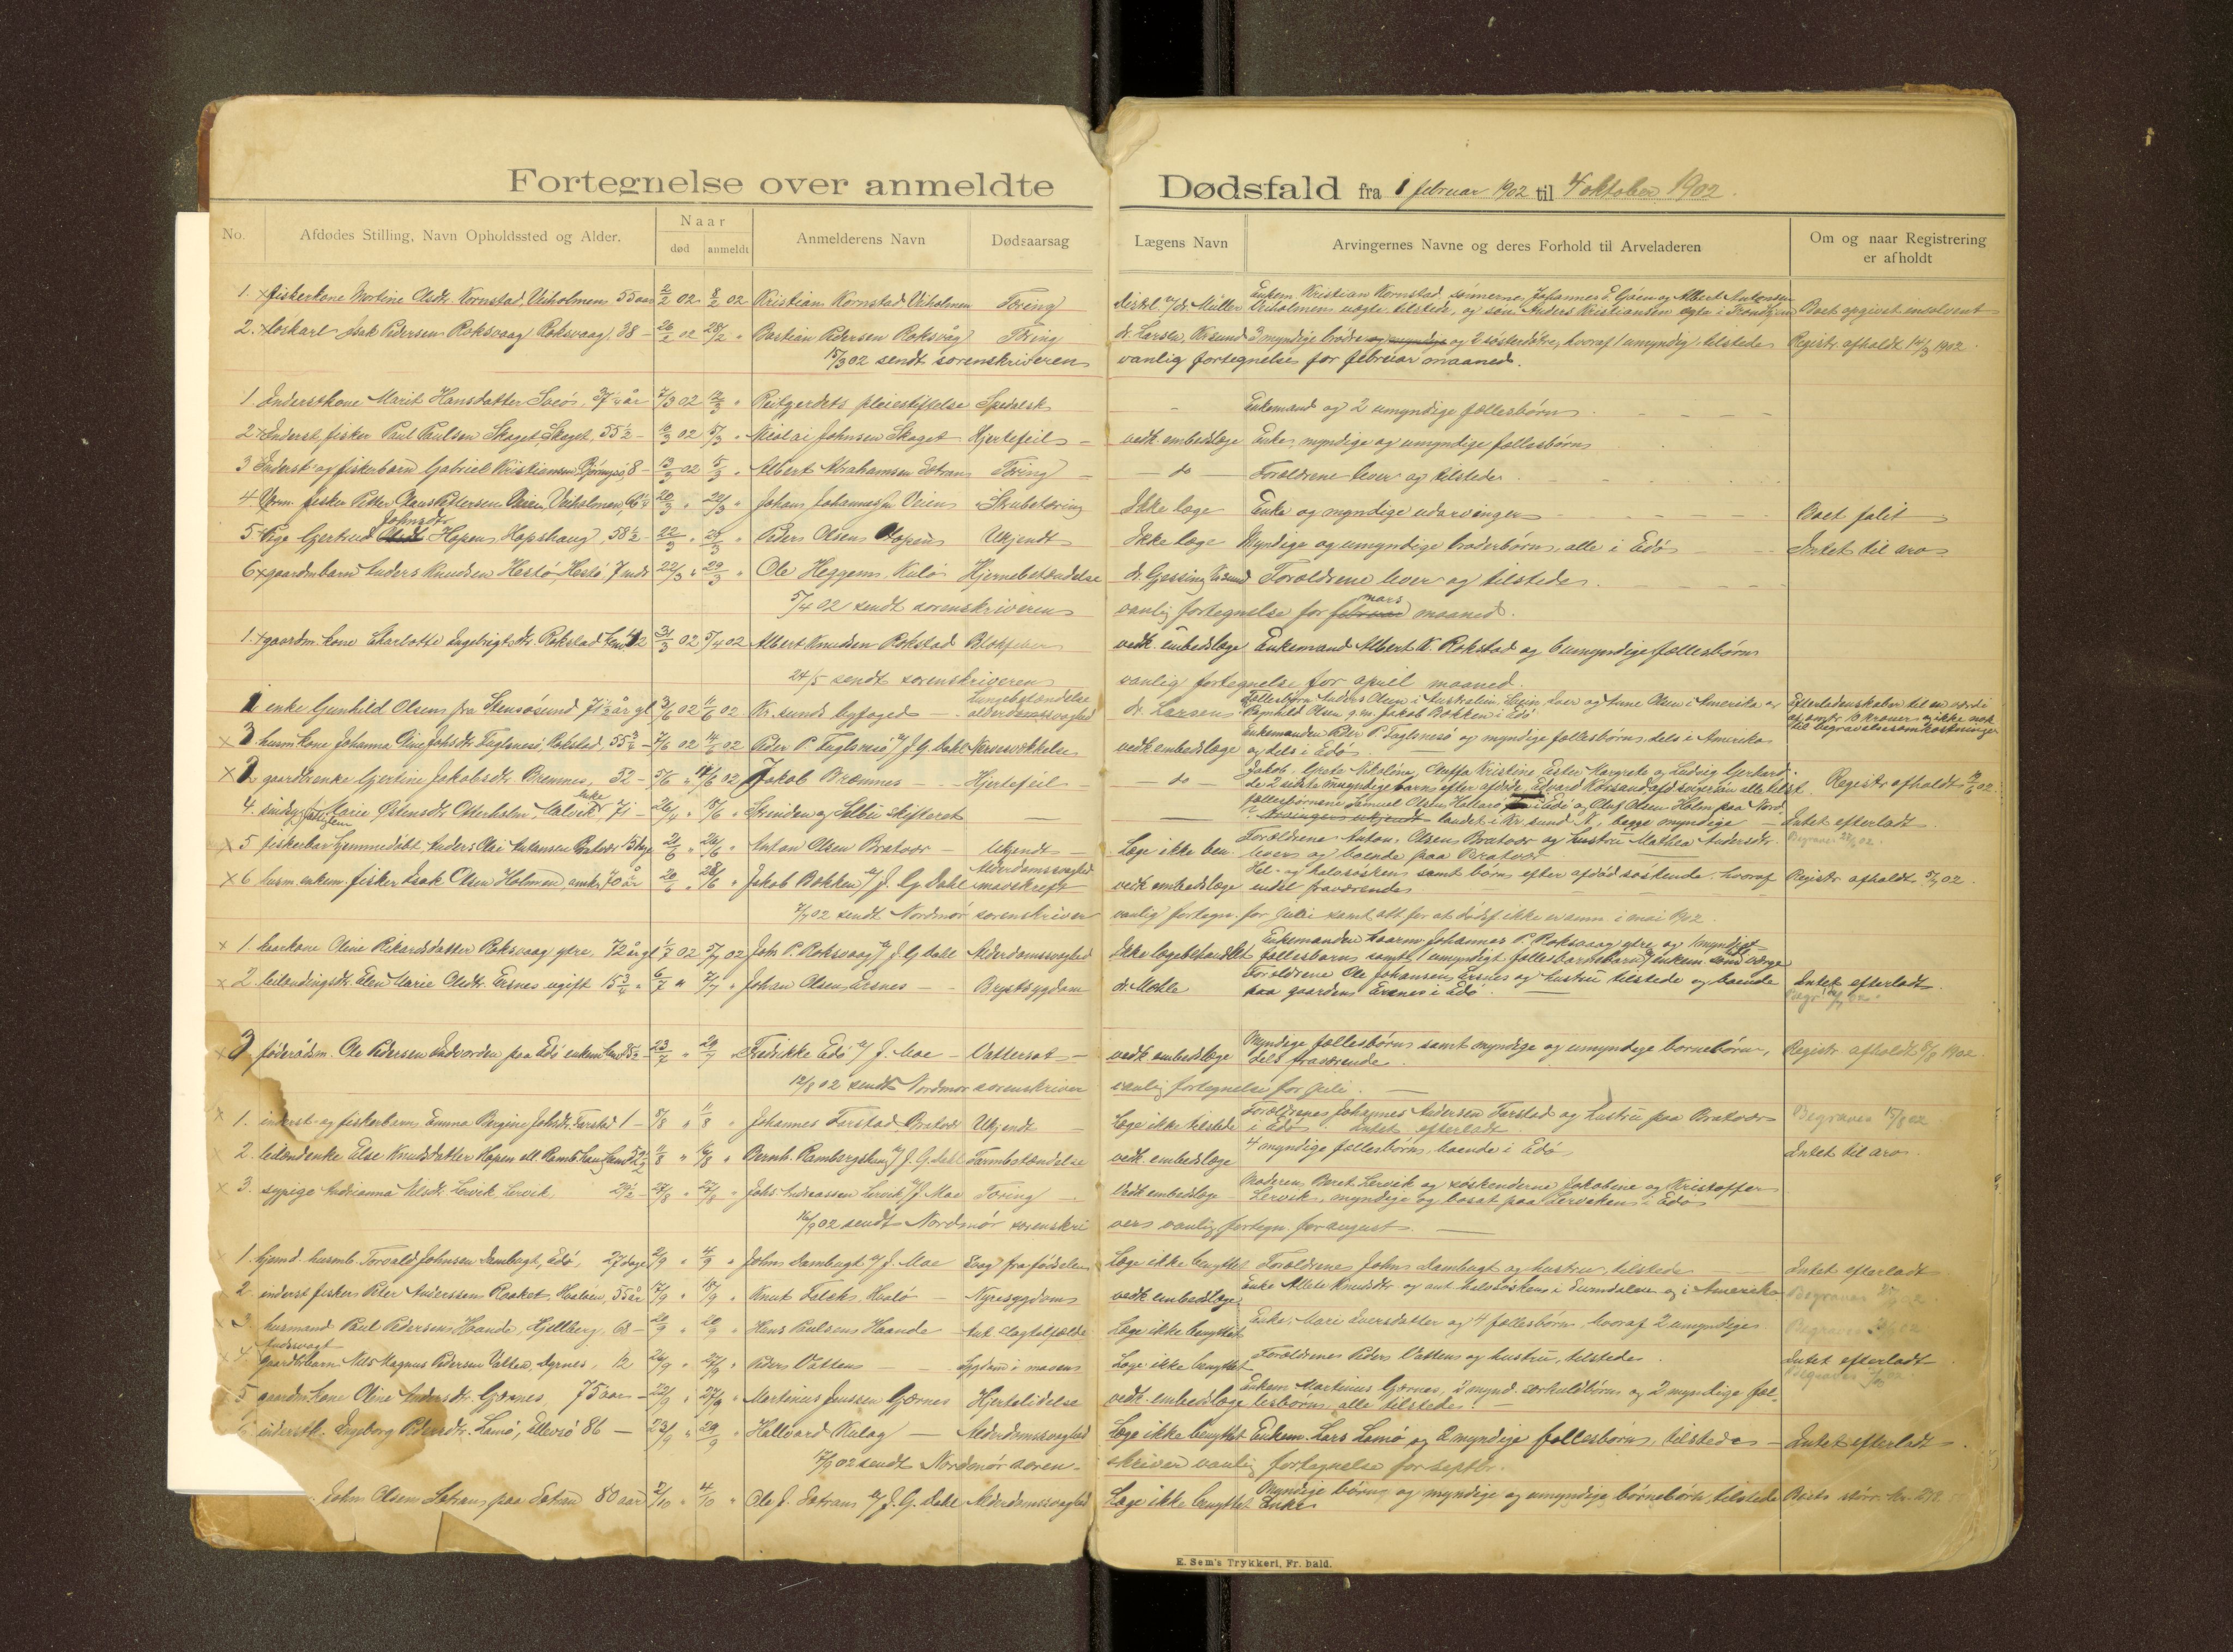 Fortegnelse over anmeldte Dødsfald fra 1 februar 1902 til 4 oktober 1902.
No. Afdødes Stilling, Navn Opholdssted og Alder. Naar død anmeldt Anmelderens Navn Dødsaarsag Lægens Navn Arvingernes Navne og deres Forhold til Arveladeren Om og naar Registrering er afholdt
Enkem. Kristian Kornstad, sønnerne Johannes E. og Albert Antonsen
1. x fiskerkone Martine Olsdr. Kornstad Veiholmen 55 aar 2/2 02 8/2 02 Kristian Kornstad Veiholmen Tæring distrl. v/ dr. Müller Veiholmen uægte tilstede, og søn Anders Kristiansen ægte i Trondhjem Boet opgivet insolvent
2. x løskarl Isak Pedersen Roksvaag Roksvaag 38 - 26/2 02 28/2 " Bastian Pedersen Roksvåg Tæring dr. Larsen, Krsund 3 myndige brødre og myndige og 2 søsterdøtre, hvoraf 1 umyndig, tilstede Registr. afholdt 14/3 1902.
15/3 02 sendt sorenskriveren vanlig fortegnelse for februar maaned.
1. Inderstkone Marit Hansdatter 37 1/4 år 7/3 02 12/3 " Reitgjerdets pleiestiftelse Spedalsk - Enkemand og 2 umyndige fællesbørn
2. x Inderst, fisker Paul Paulsen Skaget Skaget, 55 1/2 - 02 5/3 " Nicolai Johnsen Skaget Hjertefeil - vedk. embedslæge Enke, myndige og umyndige fællesbørn
3 Inderst og fiskerbarn Gabriel Kristiansen 8 - 13/3 02 " Albert Abrahamsen Sætran Tæring - do Forældrene lever og tilstede
4. fisker Petter Claus Pettersen Veien, Veiholmen, 66 1/4 20/3 " 22/3 " Johan Johannessen Veien Strubetæring Ikke læge Enke og myndige udarvinger Boet falit
Johnsdtr.
5. Pige Gjertrud Olsdt Hopen, Hopshaug, 58 1/2 - 22/3 " " Peder Olsen Hopen Ukjendt Ikke læge Myndige og umyndige broderbørn, alle i Edø Intet til arv
6 x gaardmbarn Anders Knudsen Hestø Hestø 7 mdr 22/3 " 29/3 " Ole Heggem, Kulø Hjernebetændelse dr. Gjessing Krsund Forældrene lever og tilstede.
5/4 02 sendt sorenskriveren vanlig fortegnelse for februar mars maaned.
1. x gaardm. kone Charlotte Ingebrigtsdtr. Rokstad 42 31/3 02 5/4 02 Albert Knudsen Rokstad Blodfeber vedk. embedslæge Enkemand Albert K. Rokstad og 6 umyndige fællesbørn
24/5 sendt sorenskriveren vanlig fortegnelse for april maaned.
1 enke Gunhild Olsen fra Stensøsund 71 1/2 år gl 3/6 02 11/6 02 Kr.sunds byfoged - Lungebetændelse alderdomssvaghed dr. Larsen Fællesbørn Anders Olsen i Australien, Iver og Anne Olsen i Amerika og Ragnhild Olsen g.m. Jakob Bokken i Edø Efterladenskaber til en værdi af omtr. 10 kroner og ikke nok til begravelsesomkostninger
x 3 husm. kone Johanna Oline Johsdtr. Fuglvesø, Rokstad, 55 3/4 - 7/6 02 14/6 02 Peder P. Fuglvesø v/ J. G. Dahl Nervesvækkelse vedk. embedslæge Enkemanden Peder P. Fuglvesø og myndige fællesbørn dels i Amerika og dels i Edø
x 2 gaardbrenke Gjertine Jakobsdtr. Brennes, 52 - 5/6 " 14/6 02 Jakob Brænnes - Hjertefeil - do - Jakob, Grete Nikoline, Kristine Ester Margrete og Ludvig Gerhard. De 2 sidste umyndige børn efter afdøde Edvard alle tilst. Registr afholdt 12/6 02.
4. sindssyg fattiglem Marie Østensdtr. Otterholm, Malvik 71 - 26/4 " 18/6 " Strinden og Selbu skifteret - fællesbørnene Samuel Olsen i Edø og Oluf Olsen Holm paa Nordlandet i Kr.sund N, begge myndige - Intet efterladt
Arvingers ukjendt
x 5 fiskerbar. hjemmedøbt Anders Olai Antonsen Bratvær 15 dage 21/6 " 26/6 " Anton Olsen Bratvær - Ukjendt - Læge ikke ben. Forældrene Anton Olsen Bratvær og hustru Mathea Andersdtr. lever og boende paa Bratvær Begraves 02.
x 6 husm. enkem. fisker Isak Olsen Holmen omkr. 70 år 20/6 " 28/6 " Jakob Bokken v/ J. G. Dahl Alderdomssvaghed mavekræft vedk. embedslæge Hel- og halvsøsken samt børn efter afdød søskende, hvoraf endel fraværende Registr. afholdt 5/7 02.
7/7 02 sendt Nordmør sorenskriver vanlig fortegn. for juli samt att. for at dødsf. ikke er anm. i mai 1902.
x 1. kaarkone Oline Rikardsdatter Roksvaag ytre, 72 år gl 1/7 02 5/7 02 Joh. P. Roksvaag v/ J. G. Dahl Alderdomssvaghed Ikke lægebehandlet Enkemanden kaarm. Johannes P. Roksvaag ytre og 1 myndigt fællesbarn samt 1 umyndigt fælles barnebarn v/ enkem. som værge
x 2. leilændingsdtr. Elen Marie Olsdtr. Ersnes ugift 15 3/4 " 6/7 " 7/7 " Johan Olsen, Ersnes - Brystsygdom dr. Mohle Forældrene Ole Johansen Ersnes og hustru tilstede og boende paa gaarden Ersnes i Edø Intet efterladt.
x 3 føderådsm. Ole Pedersen Indvorden paa Edø enkem. 85 1/2 - 23/7 " 29/7 " Fredrikke Edø v/ J. Moe - Vattersot - vedk. embedslæge Myndige fællesbørn samt myndige og umyndige børnebørn, dels fraværende. Registr. afholdt 8/8 1902.
12/8 02 sendt Nordmør sorenskriver vanlig fortegnelse for juli.
x 1. inderst- og fiskerbarn Emma Bergine Johsdtr. Farstad 1 - 8/8 " 11/8 " Johannes Farstad Bratvær Ukjendt - Læge ikke tilstede Forældrene Johannes Andersen Farstad og hustru paa Bratvær i Edø. Intet efterladt. Begraves 15/8 02
x 2. leilændenke Else Knudsdatter Hopen 8/8 " 16/8 " Bernh. Ramberghaug v/ J. G. Dahl Tarmbetændelse vedk. embedslæge 4 myndige fællesbørn, boende i Edø Intet til arv.
x 3. sypige Andrianna Nilsdtr. Lervik Lervik, 29 1/2 - 24/8 " 27/8 " Johs. Andreassen Lervik v/ J. Moe Tæring - Vedk. embedslæge Moderen Beret Lervik og søskenderne Jakobine og Kristoffer Lervik, myndige og bosat paa Lerviken i Edø
16/9 02 sendt Nordmør sorenskrivers vanlig fortegn. for august.
1. hjemd. husmb. Torvald Johnsen Dambugt, Edø, 27 dage 2/9 " 4/9 " John Dambugt v/ J. Moe Svag fra fødselen Læge ikke benyttet Forældrene John Dambugt og hustru, tilstede Intet efterladt
2. inderst fisker Peter Anderssen Raaket, Hvaløen, 55 år 17/9 " 18/9 " Knut Falch, Hvalø - Nyresygdom vedk. embedslæge Enke Allete Knudsdtr og ant. halvsøsken i Surndalen og i Amerika Begraves
3. husmand Paul Pedersen Haande, Hjellberg, 68 - 20/9 " 20/9 " Hans Paulsen Haande Ant. slagtilfælde Læge ikke benyttet Enke, Mari Iversdatter og 4 fællesbørn, hvoraf 2 umyndige Begraves
Aadsvagt
x 4. gaardb.barn Nils Magnus Pedersen Vatten, Dyrnes, 12 26/9 " 27/9 " Peder Vatten - Sygdom i maven Læge ikke benyttet Forældrene Peder Vatten og hustru, tilstede Intet efterladt
5 gaardm. kone Oline Andersdtr. Gjærnes 75 aar - 22/9 " 27/9 " Martinus Jenssen Gjærnes Hjertelidelse vedk. embedslæge Enkem. Martinus Gjærnes, 2 mynd. særkuldbørn og 2 myndige fællesbørn alle tilstede. -
6 inderstk. Ingeborg Pedersdtr. Lamø, Ellevsø 86 - 23/9 " 29/9 " Hallvard Kulag - Alderdomssvaghed Læge ikke benyttet Enkem. Lars Lamø og 2 myndige fællesbørn, tilstede - Intet efterladt
17/ 02 sendt Nordmør sorenskriver vanlig fortegnelse for septbr.
John Olsen Sætran paa Sætran 80 aar 2/10 " 4/10 " Ole J. Sætran v/ J. G. Dahl Alderdomssvaghed Læge ikke benyttet Myndige børn og myndige og umyndige børnebørn, tilstede Enke Boets
E. Sem's Trykkeri, Fr.hald.